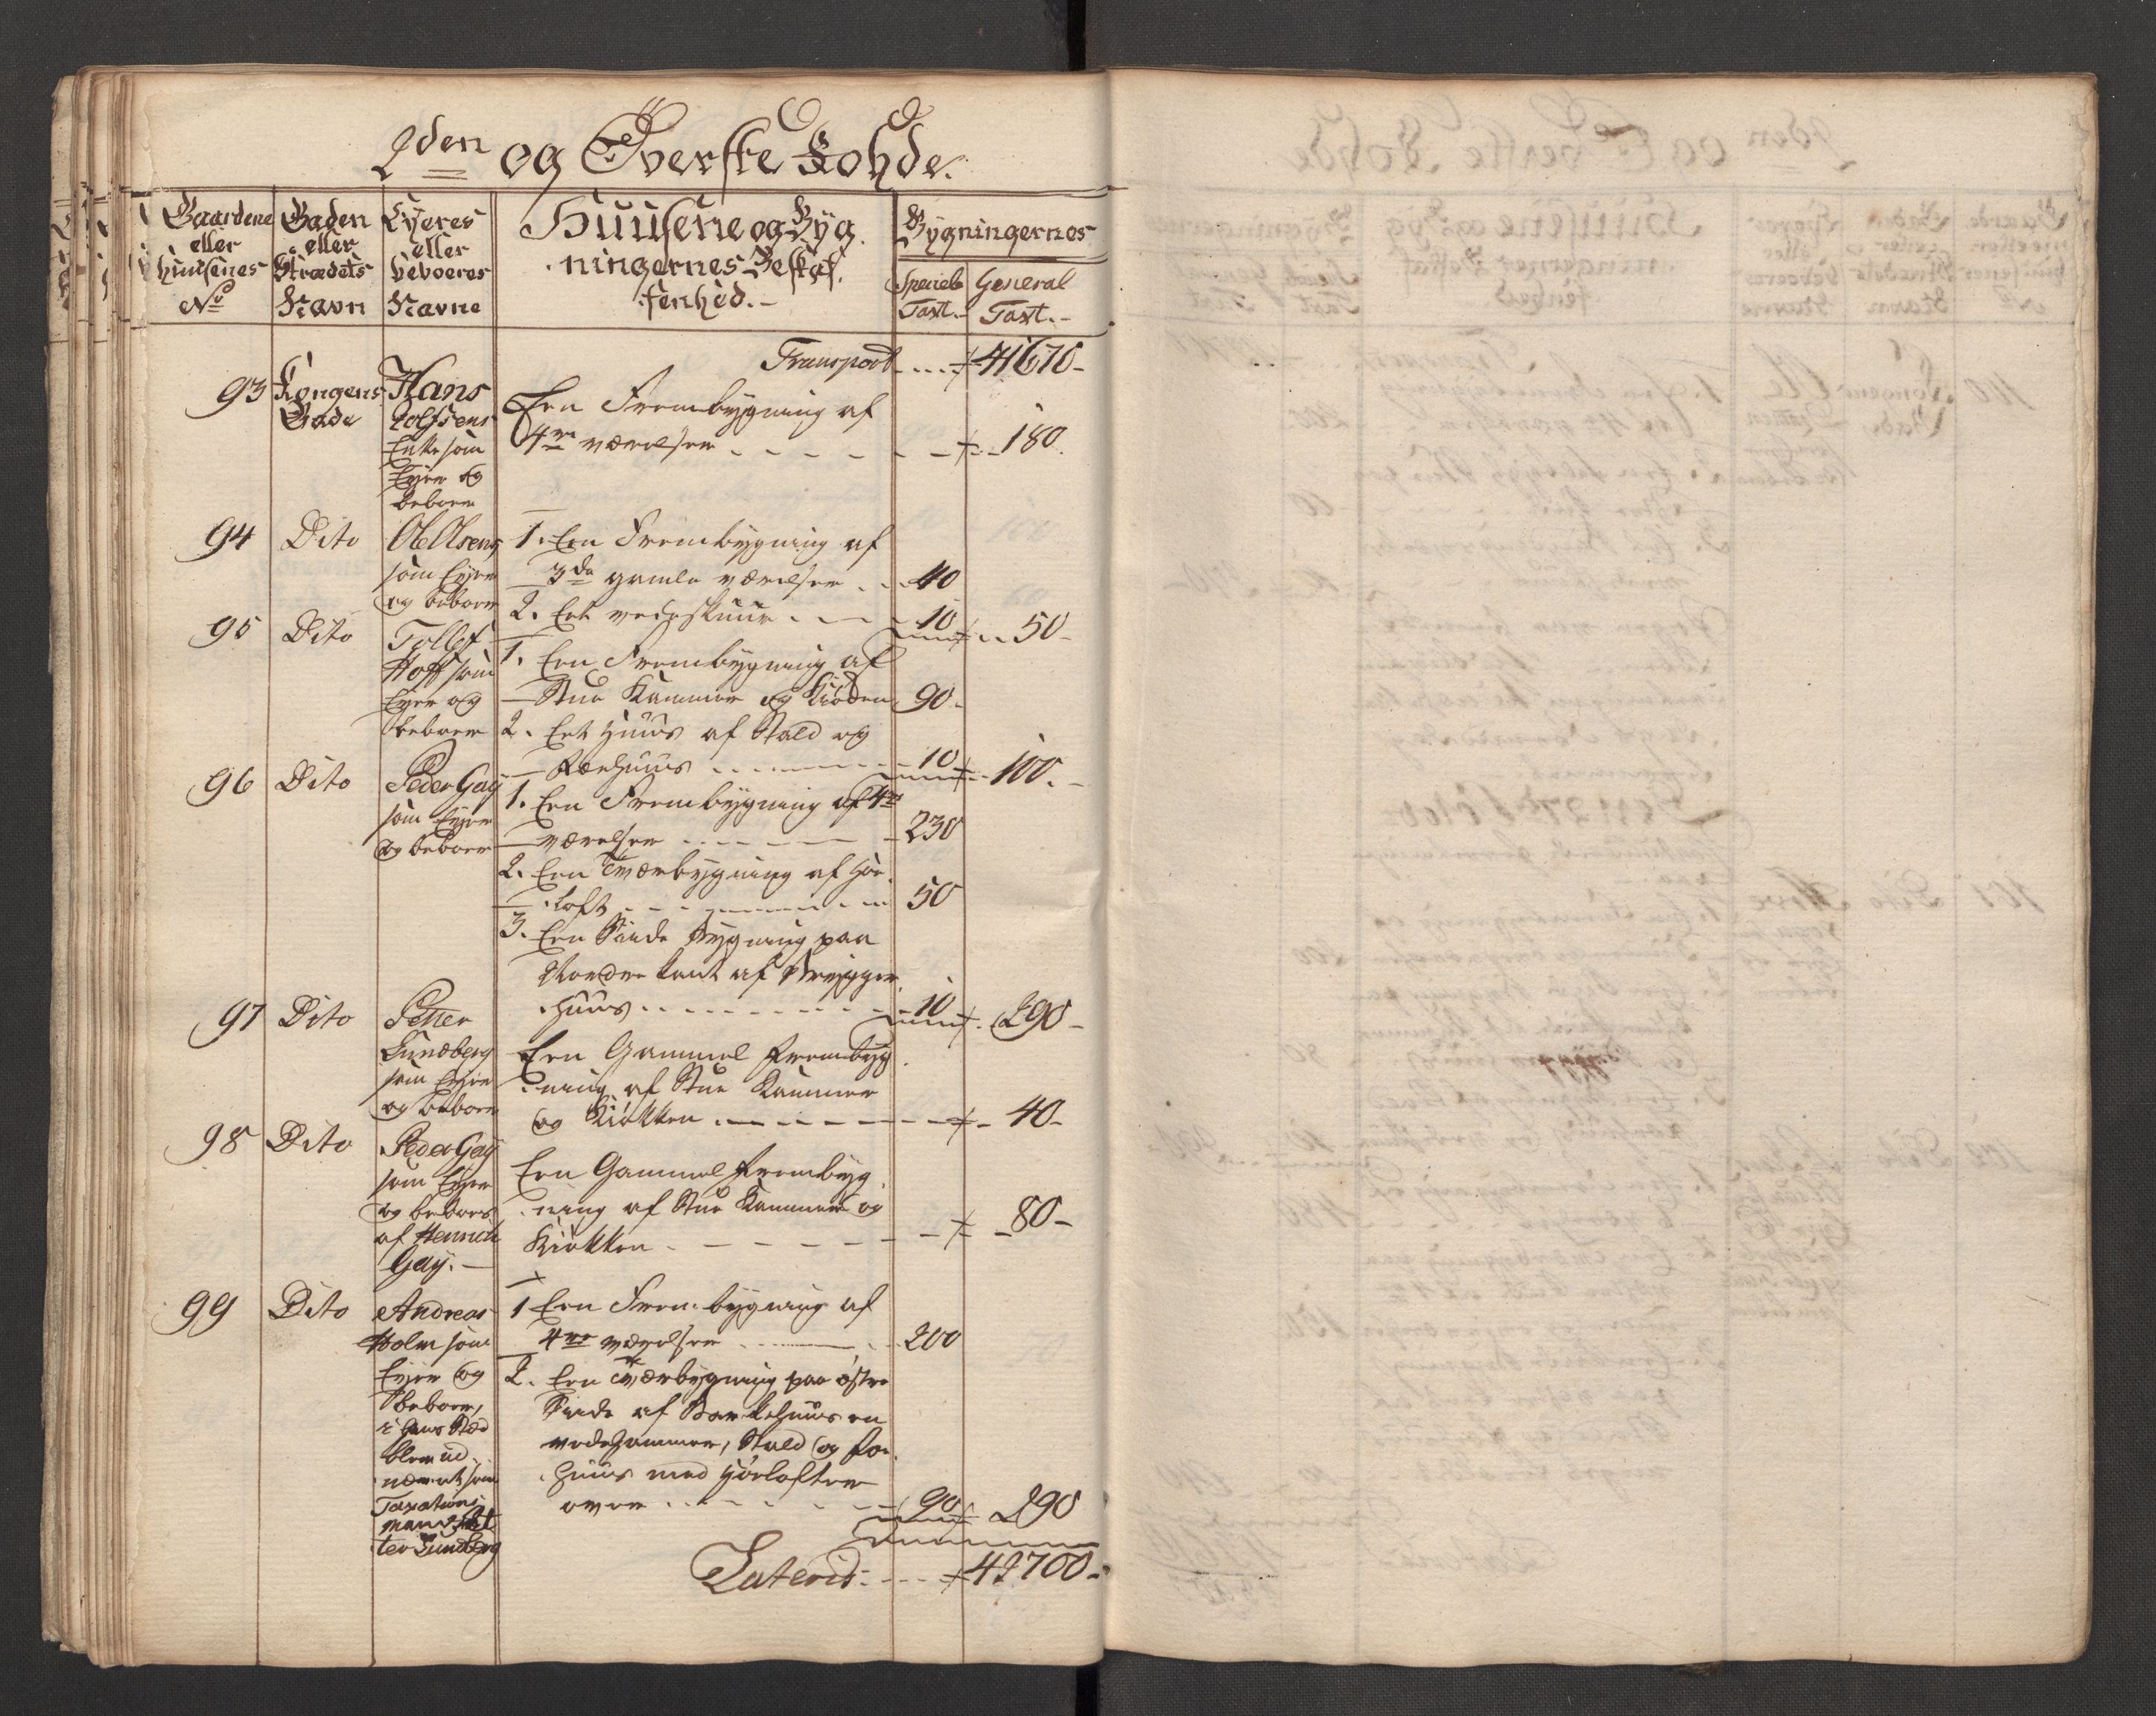 2den og Øverste Rohde.
Gaardene eller Huusenes No
Gaden eller Strædets Navn
Eyeres eller bevoeres Navne
Huusene og Byg-
ningernes Beskaf-
fenhed.-
Bygningernes
Speciele Taxt.-
General Taxt.-
Transport - - - 41670-
93 Kongens Gade
Hans Enke som Eyer og beboer
Een Frembygning af
4re værelser - - - 180.
94 Dito
Ole Olsen som Eyer og beboer
1. Een Frembygning af
3de gamle værelser - - 40
2. Eet vedeskuur - - - 10 - - 50-
95 Dito
Tollef Hoff som Eyer og beboer
1. Een Frembygning af
Stue Kammer og Kiøcken 90-
2. Eet Huus af Stald og
Fæehuus - - - 10 - - 100.-
96 Dito
Peder Gay som Eyer og beboer
1. Een Frembygning af 4re
værelser - - - 230
2. Een Tværbygning af Høe-
loft - - - 50
3. Een Siide Bygning paa
Nordre kant af Brygger-
huus - - - 10 - 290-
97 Dito
Petter Lundberg som Eyer og beboer
Een Gammel frembyg-
ning af Stue Kammer
og Kiøkken - - - 40-
98 Dito
Peder Gay som Eyer og beboes af Henrich Gay.-
Een Gammel frembyg-
ning af Stue Kammer og
Kiøkken - - - 80-
99 Dito
Andreas Holm som Eyer og beboer, i hans Sted blev ud- nævnt som Taxations- mand Pet- ter Lundberg
1 Een Frembygning af
4re værelser - - - 200
2. Een Tværbygning paa østre
Siide af
vedekammer, Stald og fæe-
huus med Høelofter
over - - - 90 - 290
Lateris - - - 42700-